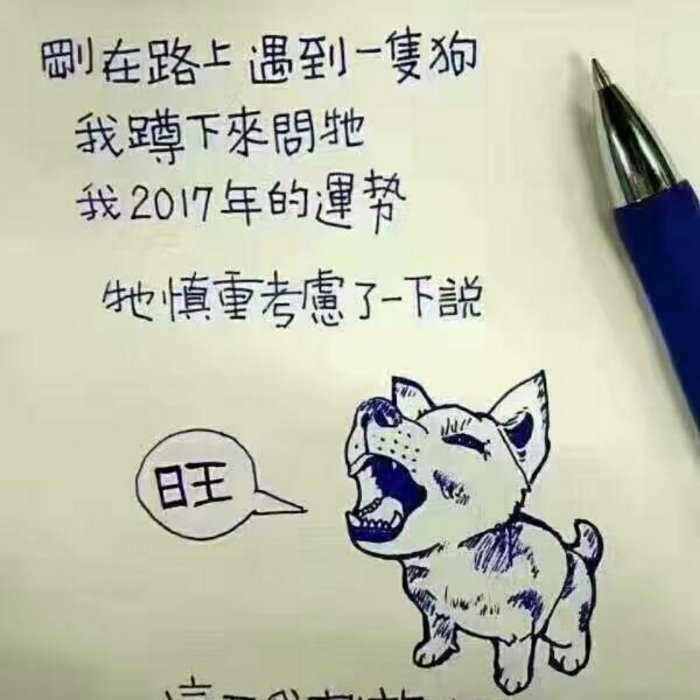 剛在路上遇到一隻狗
我蹲下來問牠
我2017年的運勢
牠慎重考慮了一下説
旺